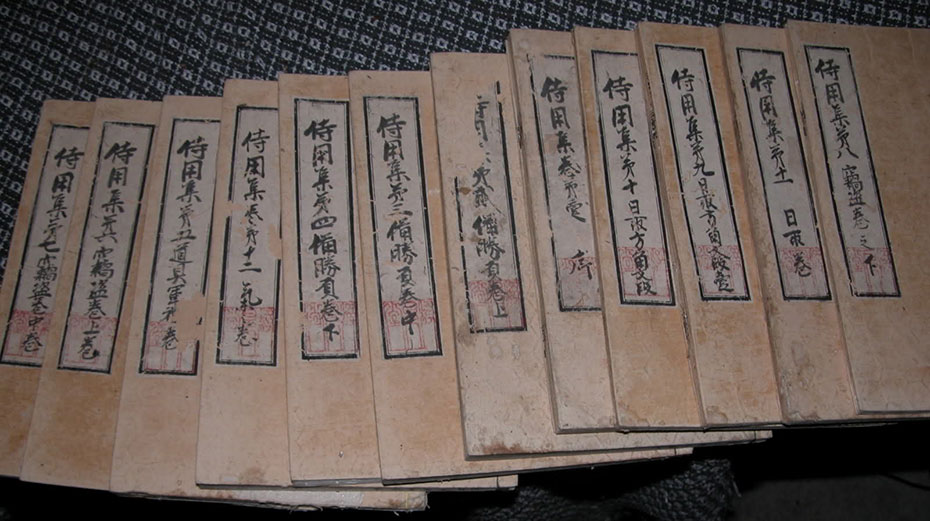 侍用集第八竊盗巻之下
侍用集第十一 日取巻
侍用集第九日取方角之段
侍用集第十日取方角之段
侍用集巻第壱 序
侍用 備勝負巻上
侍用集第三備勝負巻中
侍用集第四備勝負巻下
侍用集巻第十二 氣之巻
侍用集第五道具軍礼巻
侍用集第六竊盗巻上巻
侍用集第七竊盗巻中巻